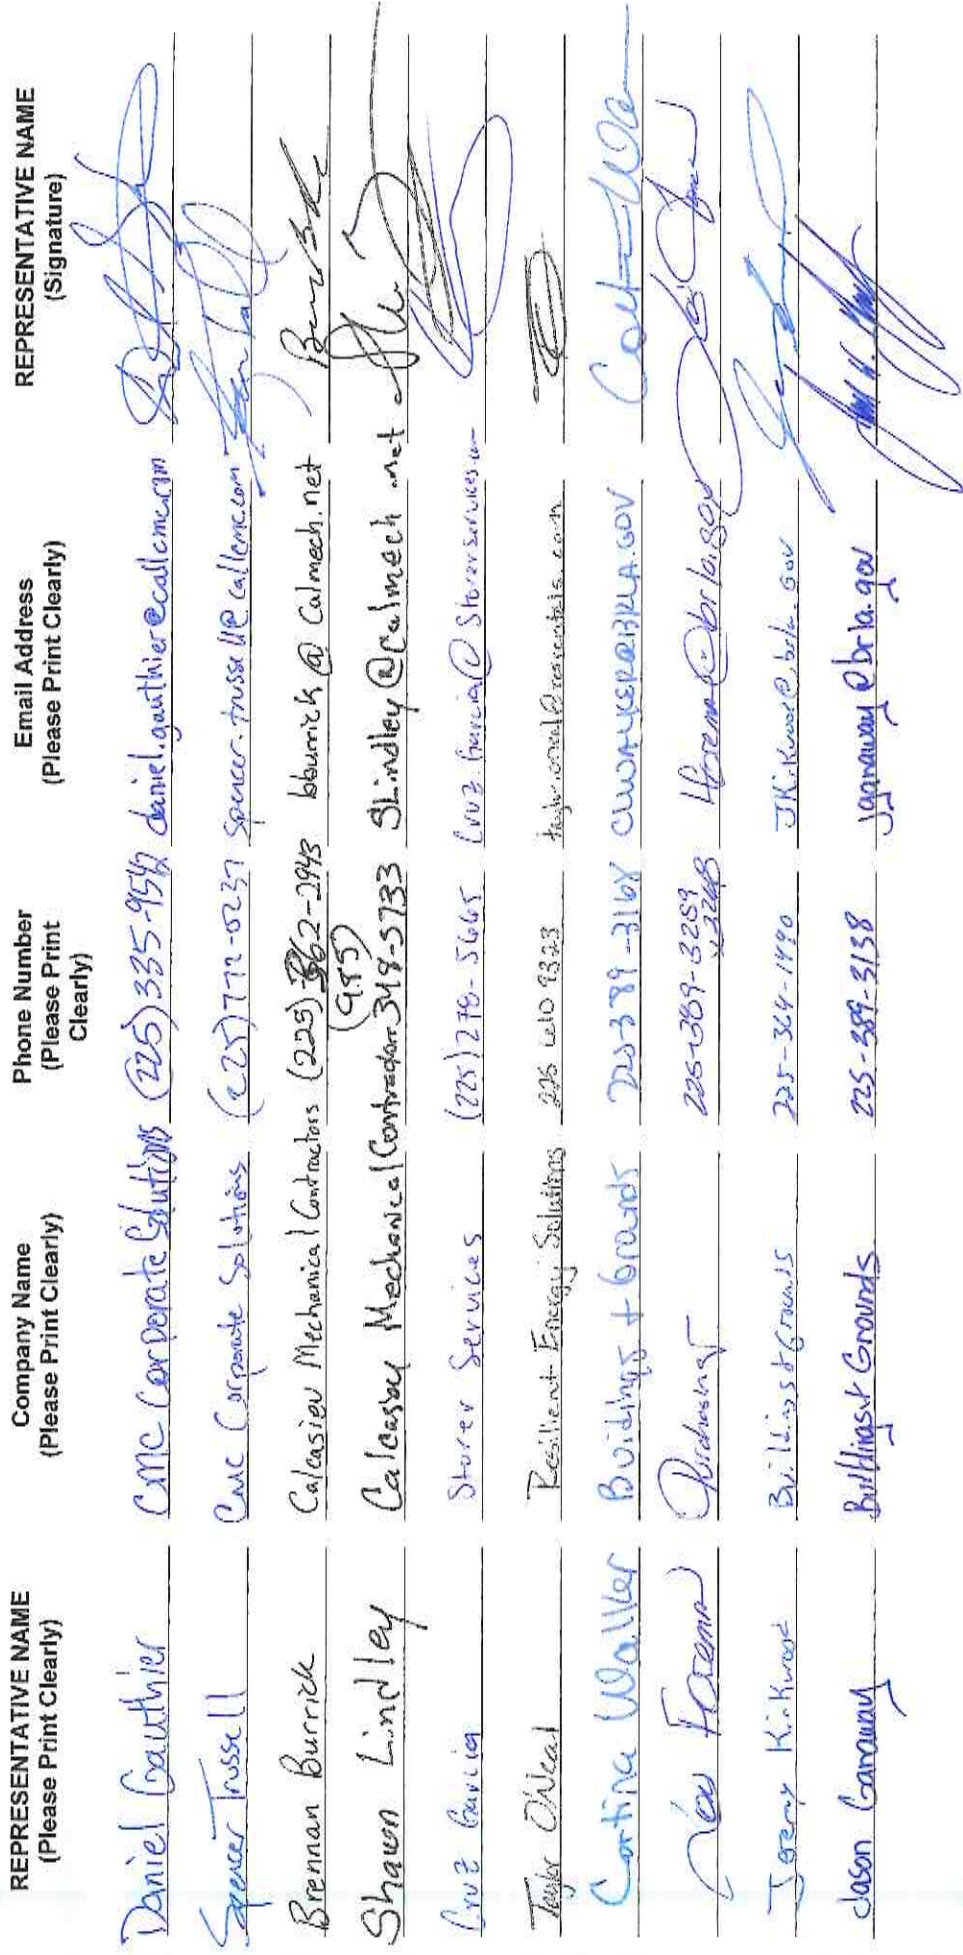 REPRESENTATIVE NAME (Please Print Clearly) Company Name (Please Print Clearly) Phone Number (Please Print Clearly) Email Address (Please Print Clearly) REPRESENTATIVE NAME (Signature)
Daniel Gauthier CMC Corporate Solutions (225) 335-9542 daniel.gauthier@callcmc.com
Spencer Trussell CMC Corporate Solutions (225) 772-0237 spencer.trussell@callcmc.com
Brennan Burrick Calcasieu Mechanical Contractors (225) 362-2943 bburrick@Calmech.net
Shawn Lindley Calcasieu Mechanical Contractors (985) 348-5733 SLindley@Calmech.net
Cruz Garcia Storer Services (225) 278-5665 Cruz.Garcia@Storerservices.com
Taylor O'Neal Resilient Energy Solutions 225 610 9323
Cortina Walker Buildings + Grounds 225 389-3168 CLWALKER@BRLA.GOV
Purchasing 225-389-3259 x 3268
Jeremy Kirkwood Buildings & Grounds 225-364-1490 JKirkwood@brla.gov
Jason Gannaway Buildings & Grounds 225-389-3138 jgannaway@brla.gov